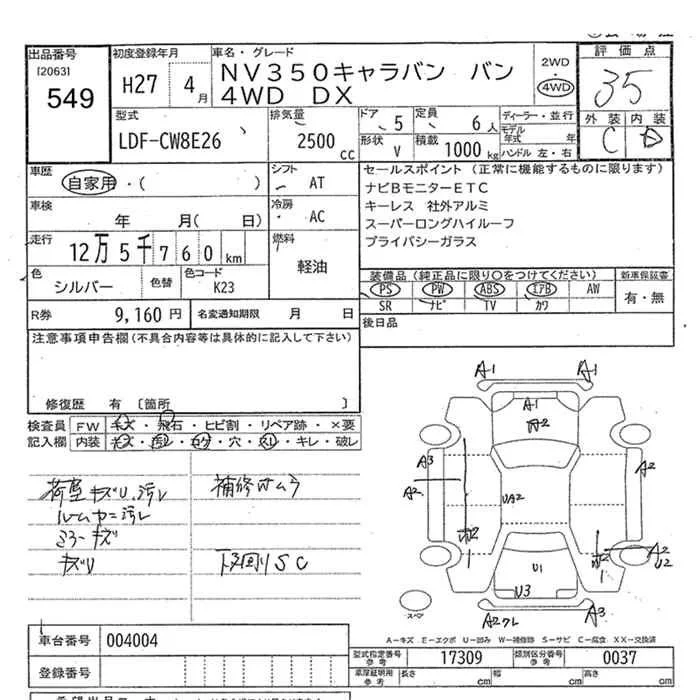 出品番号 初度登録年月 車名・グレード 2WD 評価点
[2063] 549 H27 4月 NV350キャラバン バン 4WD DX ・ 4WD 35
型式 排気量 ドア 5 定員 6人 ディーラー・並行 外装 内装
LDF-CW8E26 2500cc 形状 V 積載 1000kg モデル年式 年 C D
ハンドル 左・右
車歴 シフト セールスポイント(正常に機能するものに限ります)
自家用・( ) AT ナビBモニターETC
車検 冷房 キーレス 社外アルミ
年 月( 日) AC スーパーロングハイルーフ
走行 燃料 プライバシーガラス
12万5千760km 軽油
色 シルバー 色替 色コード K23 装備品(純正品に限り○をつけてください) 新車保証書
PS PW ABS エアB AW 有・無
SR ナビ TV カワ
R券 9,160円 名変通知期限 月 日 後日品
注意事項申告欄(不具合内容等は具体的に記入して下さい)
修復歴 有 〔箇所 〕
検査員 FW キズ・飛石・ヒビ割・リペア跡・×要
記入欄 内装 キズ・汚レ・コゲ・穴・スレ・キレ・破レ
荷室キズU.汚レ 補修オムラ
ルームカー汚レ
ミラーキズ
キズU 下回りSC
A1 A1
A1
A2
A3 A2 UA2 A2
A2 U2
U1
U3
A2クレ A3
スペア
A-キズ E-エクボ U-凹み W-補修跡 S-サビ C-腐食 XX-交換済
車台番号 004004
型式指定番号 参考 17309 類別区分番号 参考 0037
登録番号 車庫証明用 参考 長さ cm 幅 cm 高さ cm